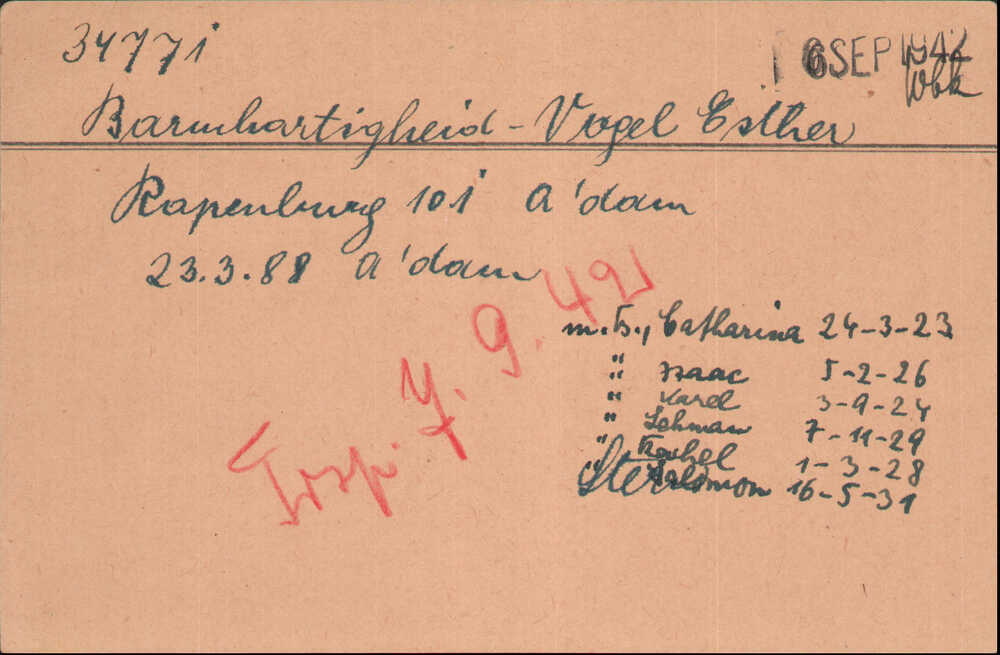 34771
6 SEP 1942
Wbk
Barmhartigheid - Vogel Esther
Rapenburg 101 A'dam
23.3.88 A'dam
Trsp. 7. 9. 42
m. B., Catharina 24-3-23
" Izaac 5-2-26
" Karel 3-9-24
" Lehman 7-11-29
" Rachel 1-3-28
" Salomon 16-5-31